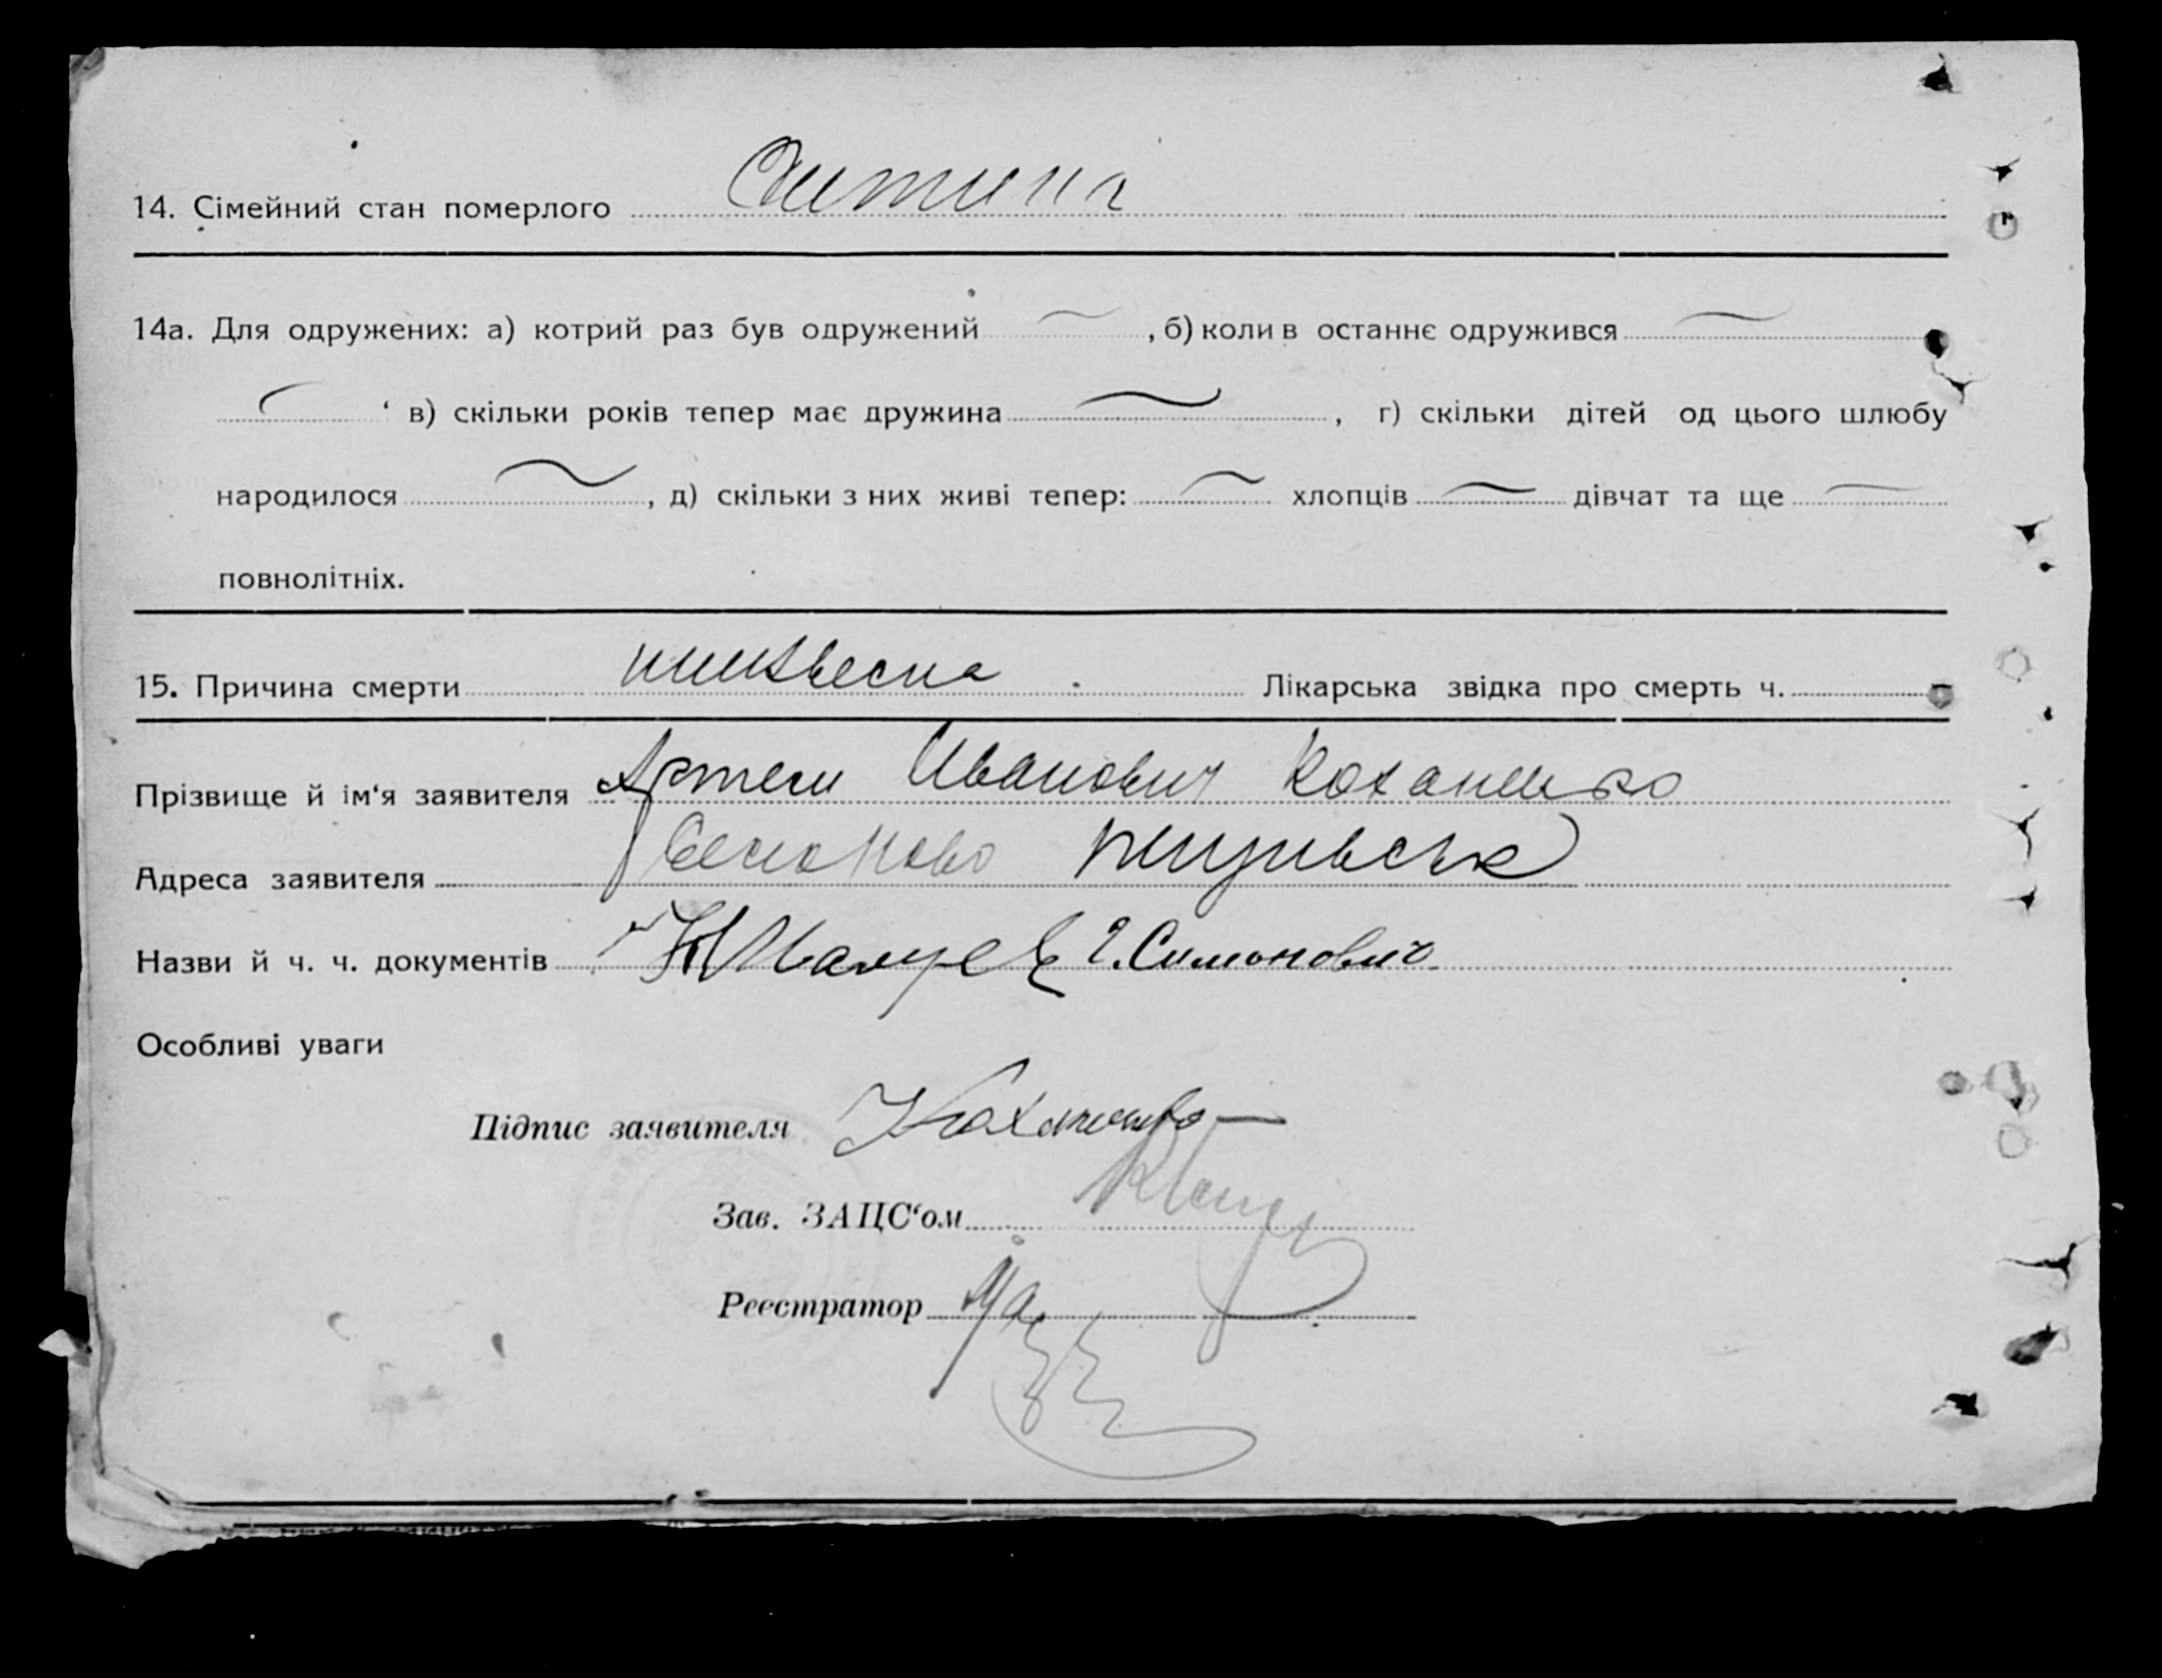 14. Сімейний стан померлого дитина
14а. Для одружених: а) котрий раз був одружений , б) коли в останнє одружився
в) скільки років тепер має дружина , г) скільки дітей од цього шлюбу
народилося , д) скільки з них живі тепер: хлопців дівчат та ще
повнолітніх.
15. Причина смерти Лікарська звідка про смерть ч.
Прізвище й ім'я заявителя Артем Иванович Коханенко
Адреса заявителя
Назви й ч. ч. документів Г. Симонович
Особливі уваги
Підпис заявителя Коханенко
Зав. ЗАЦС'ом
Реєстратор